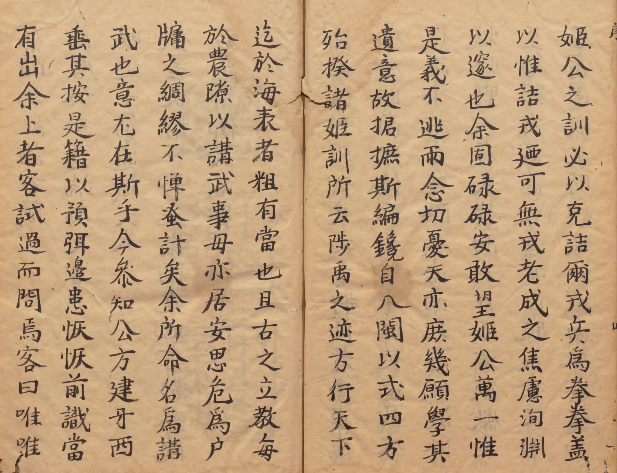 姬公之訓必以克詰爾戎兵爲拳拳盖
以惟詰戎廼可無戎老成之焦慮洵淵
以邃也余固碌碌安敢望姬公萬一惟
是義不逃雨念切憂天亦庻幾願學其
遺意故捃摭斯編鑱自八閩以式四方
殆揆諸姬訓所云陟禹之迹方行天下
迄於海表者粗有當也且古之立教每
於農隙以講武事毋亦居安思危爲户
牖之綢繆不憚蚤計矣余所命名爲講
武也意尤在斯乎今叅知公方建牙西
垂其按是籍以預弭邊患恢恢前識當
有出余上者客試過而問焉客曰唯唯